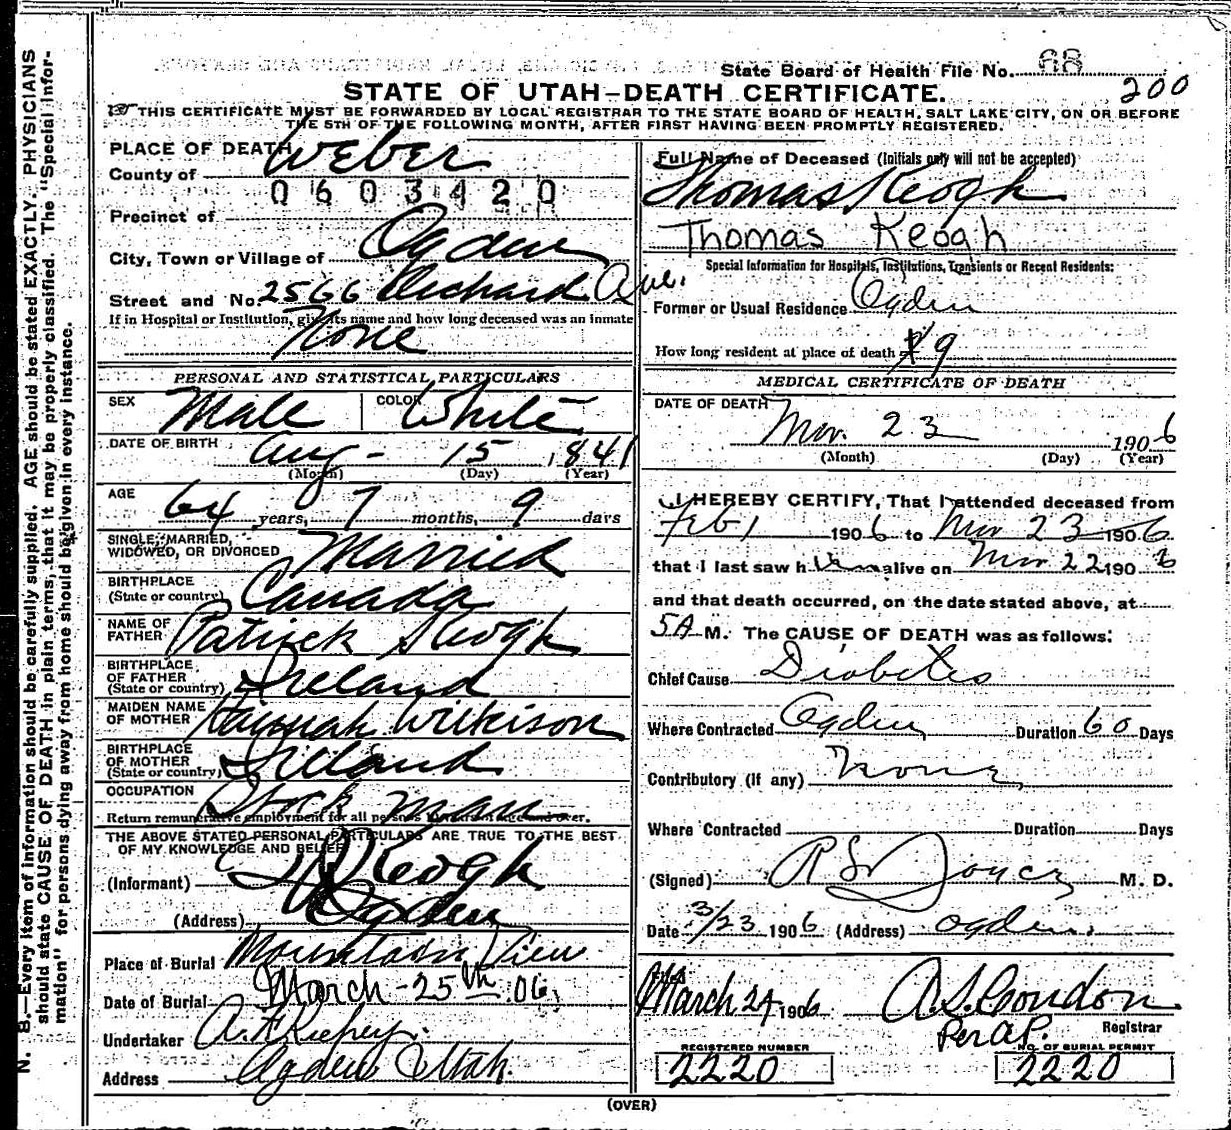 State Board of Health File No. 68
200
STATE OF UTAH–DEATH CERTIFICATE.
THIS CERTIFICATE MUST BE FORWARDED BY LOCAL REGISTRAR TO THE STATE BOARD OF HEALTH, SALT LAKE CITY, ON OR BEFORE
THE 5TH OF THE FOLLOWING MONTH, AFTER FIRST HAVING BEEN PROMPTLY REGISTERED.
PLACE OF DEATH
County of Weber
0603420
Precinct of
City, Town or Village of Ogden
Street and No. 2566 Orchard Ave.
If in Hospital or Institution, give its name and how long deceased was an inmate
None
PERSONAL AND STATISTICAL PARTICULARS
SEX Male COLOR White
DATE OF BIRTH Aug - 15, 1841
(Month) (Day) (Year)
AGE
64 years, 7 months, 9 days
SINGLE, MARRIED,
WIDOWED, OR DIVORCED Married
BIRTHPLACE
(State or country) Canada
NAME OF
FATHER Patrick Keogh
BIRTHPLACE
OF FATHER
(State or country) Ireland
MAIDEN NAME
OF MOTHER Hannah Wilkison
BIRTHPLACE
OF MOTHER
(State or country) Ireland
OCCUPATION Stock man
Return remunerative employment for all persons over.
THE ABOVE STATED PERSONAL PARTICULARS ARE TRUE TO THE BEST
OF MY KNOWLEDGE AND BELIEF
(Informant) Keogh
(Address) Ogden
Place of Burial Mountain View
Date of Burial March - 25th 06,
Undertaker
Address Ogden Utah.
Full Name of Deceased (Initials only will not be accepted)
Thomas Keogh
Thomas Keogh
Special Information for Hospitals, Institutions, Transients or Recent Residents:
Former or Usual Residence Ogden
How long resident at place of death 9
MEDICAL CERTIFICATE OF DEATH
DATE OF DEATH
Mar. 23 1906
(Month) (Day) (Year)
I HEREBY CERTIFY, That I attended deceased from
Feb 1 1906 to Mar 23 1906
that I last saw him alive on Mar 22 1906
and that death occurred, on the date stated above, at
5A M. The CAUSE OF DEATH was as follows:
Chief Cause Diabetes
Where Contracted Ogden Duration 60 Days
Contributory (if any) None
Where Contracted Duration Days
(Signed) M. D.
Date 3/23 1906 (Address) Ogden
March 24 1906 A. S. Condon
Per A.P. Registrar
REGISTERED NUMBER
2220
NO. OF BURIAL PERMIT
2220
(OVER)
N. B.—Every item of information should be carefully supplied. AGE should be stated EXACTLY. PHYSICIANS
should state CAUSE OF DEATH in plain terms, that it may be properly classified. The "Special Infor-
mation" for persons dying away from home should be given in every instance.